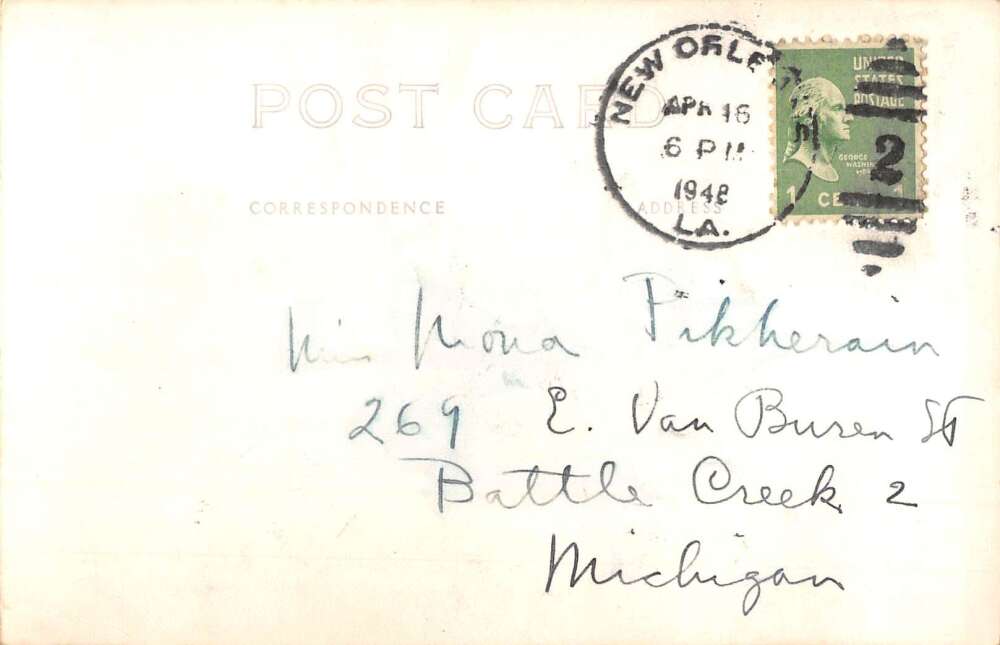 POST CARD
CORRESPONDENCE
ADDRESS
NEW ORLE
APR 16
6 PM
1948
LA.
UNITED
STATES
POSTAGE
GEORGE
1 CE 1
2
Miss Mona Pikherain
269 E. Van Buren St
Battle Creek 2
Michigan